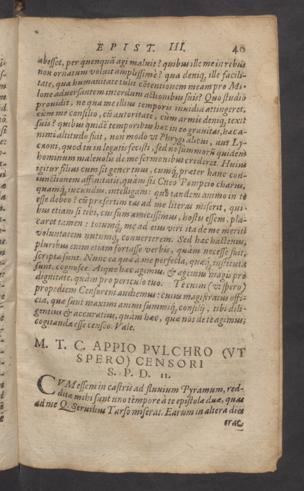 EPIST. III. 40
abesset, per quemquã agi maluit? quibus ille me in rebus
non ornatum voluit amplissimè? qua deniq; ille facili-
tate, qua humanitate tulit côtentionem meam pro Mi-
lone adversantem interdum actionibus suis? Quo studio
providit, ne qua me illius temporis invidia attingeret,
cùm me consilio, cùm autoritate, cùm armis deniq; texit
suis? quibus quidê temporibus hæc in eo gravitas, hæc a-
nimi altitudo fuit, non modò ut Phrygi alicui, aut Ly-
caoni, quod tu in legatis fecisti, sed ne summorũ quidem
hominum malevolis de me sermonibus crederet. Huius
igitur filius cum sit gener tuus, cumq; præter hanc con-
iunctionem affinitatis, quàm sit Cneo Pompeio charus,
quamq; iucundus, intelligam: quo tandem animo in te
esse debeo? cũ præsertim eas ad me literas miserit, qui-
bus etiam si tibi, cui sum amicissimus, hostis essem, pla-
carer tamen: totumq; me ad eius viri ita de me meriti
voluntatem nutumq; converterem. Sed hæc hactenus,
pluribus enim etiam fortasse verbis, quàm necesse fuit,
scripta sunt. Nunc ea quæ à me perfecta, quæq; instituta
sunt, cognosce. Atque hæc agimus, & agimus magis pro
dignitate, quàm pro periculo tuo. Te enim (ut spero)
propediem Censorem audiemus: cuius magistratus offi-
cia, quæ sunt maximi animi summiq; consilij, tibi dili-
gentius & accuratius, quàm hæc, quæ nos de te agimus,
cogitanda esse censeo. Vale.
M. T. C. APPIO PVLCHRO (VT
SPERO) CENSORI
S. P. D. 11.
CVM essem in castris ad fluvium Pyramum, red-
ditæ mihi sunt uno tempore à te epistolæ duæ, quas
ad me Q. Servilius Tarso miserat. Earum in altera dies
erat